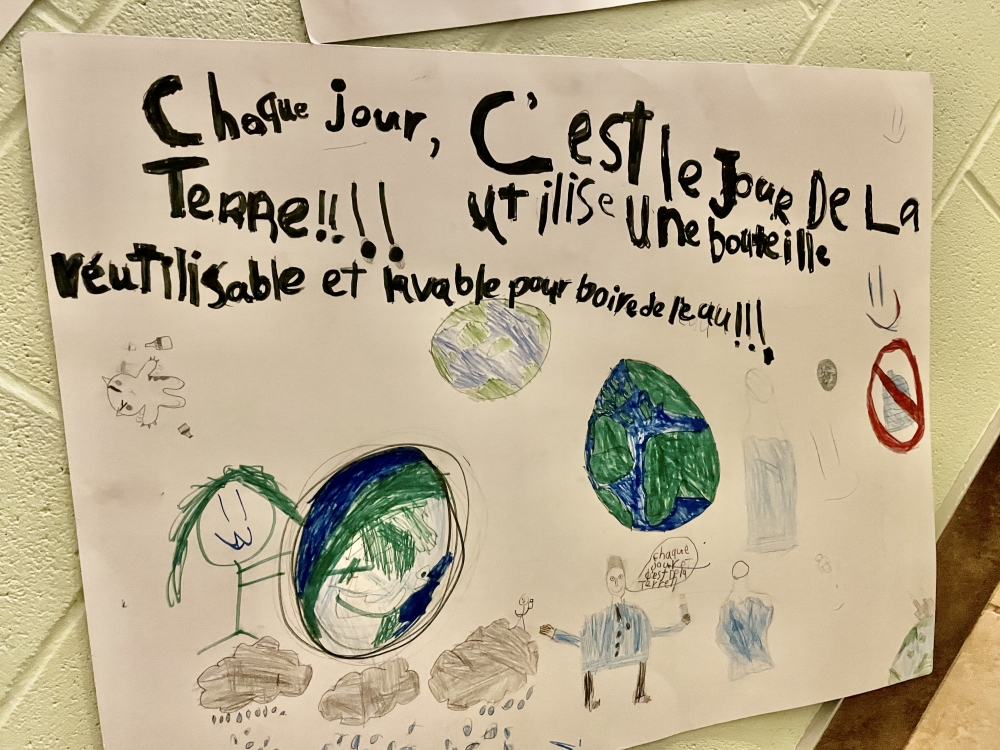 Chaque jour, C'est le Jour De La
Terre!!!! utilise Une bouteille
réutilisable et lavable pour boire de l'eau!!!
chaque
jour
c'est le la
Terre!!